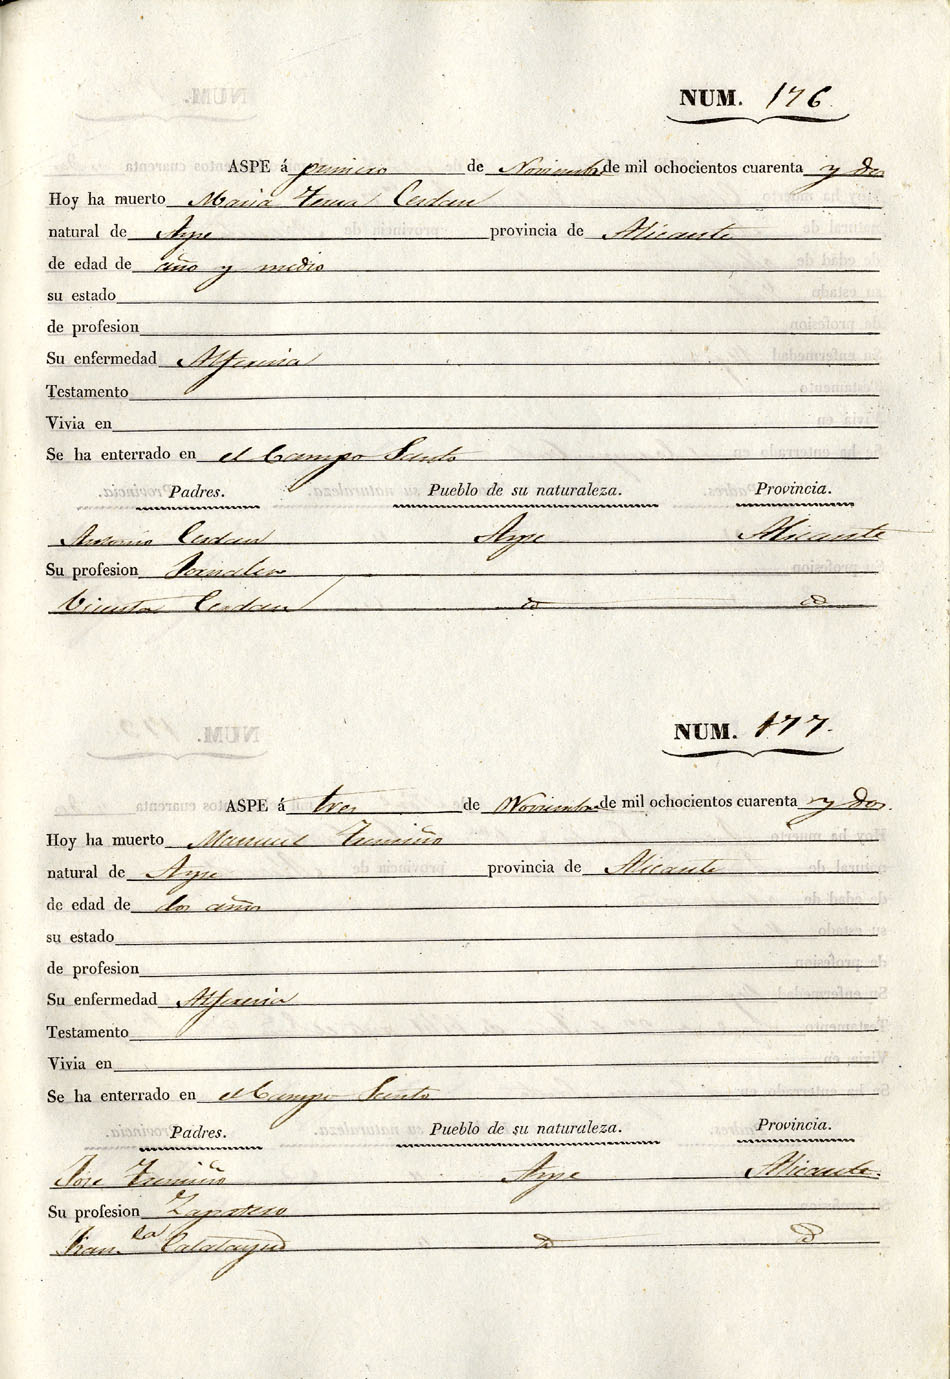 NUM. 176.
ASPE á primero de Noviembre de mil ochocientos cuarenta y dos
Hoy ha muerto Maria Teresa Cerdan
natural de Aspe provincia de Alicante
de edad de año y medio
su estado
de profesion
Su enfermedad Alferecia
Testamento
Vivia en
Se ha enterrado en el Campo Santo
Padres. Pueblo de su naturaleza. Provincia.
Antonio Cerdan Aspe Alicante
Su profesion Jornalero
Vicenta Cerdan d d
NUM. 177.
ASPE á tres de Noviembre de mil ochocientos cuarenta y dos.
Hoy ha muerto Manuel
natural de Aspe provincia de Alicante
de edad de dos años
su estado
de profesion
Su enfermedad Alferecia
Testamento
Vivia en
Se ha enterrado en el Campo Santo
Padres. Pueblo de su naturaleza. Provincia.
Jose Aspe Alicante.
Su profesion Zapatero
Fran.ca Calatayud d d